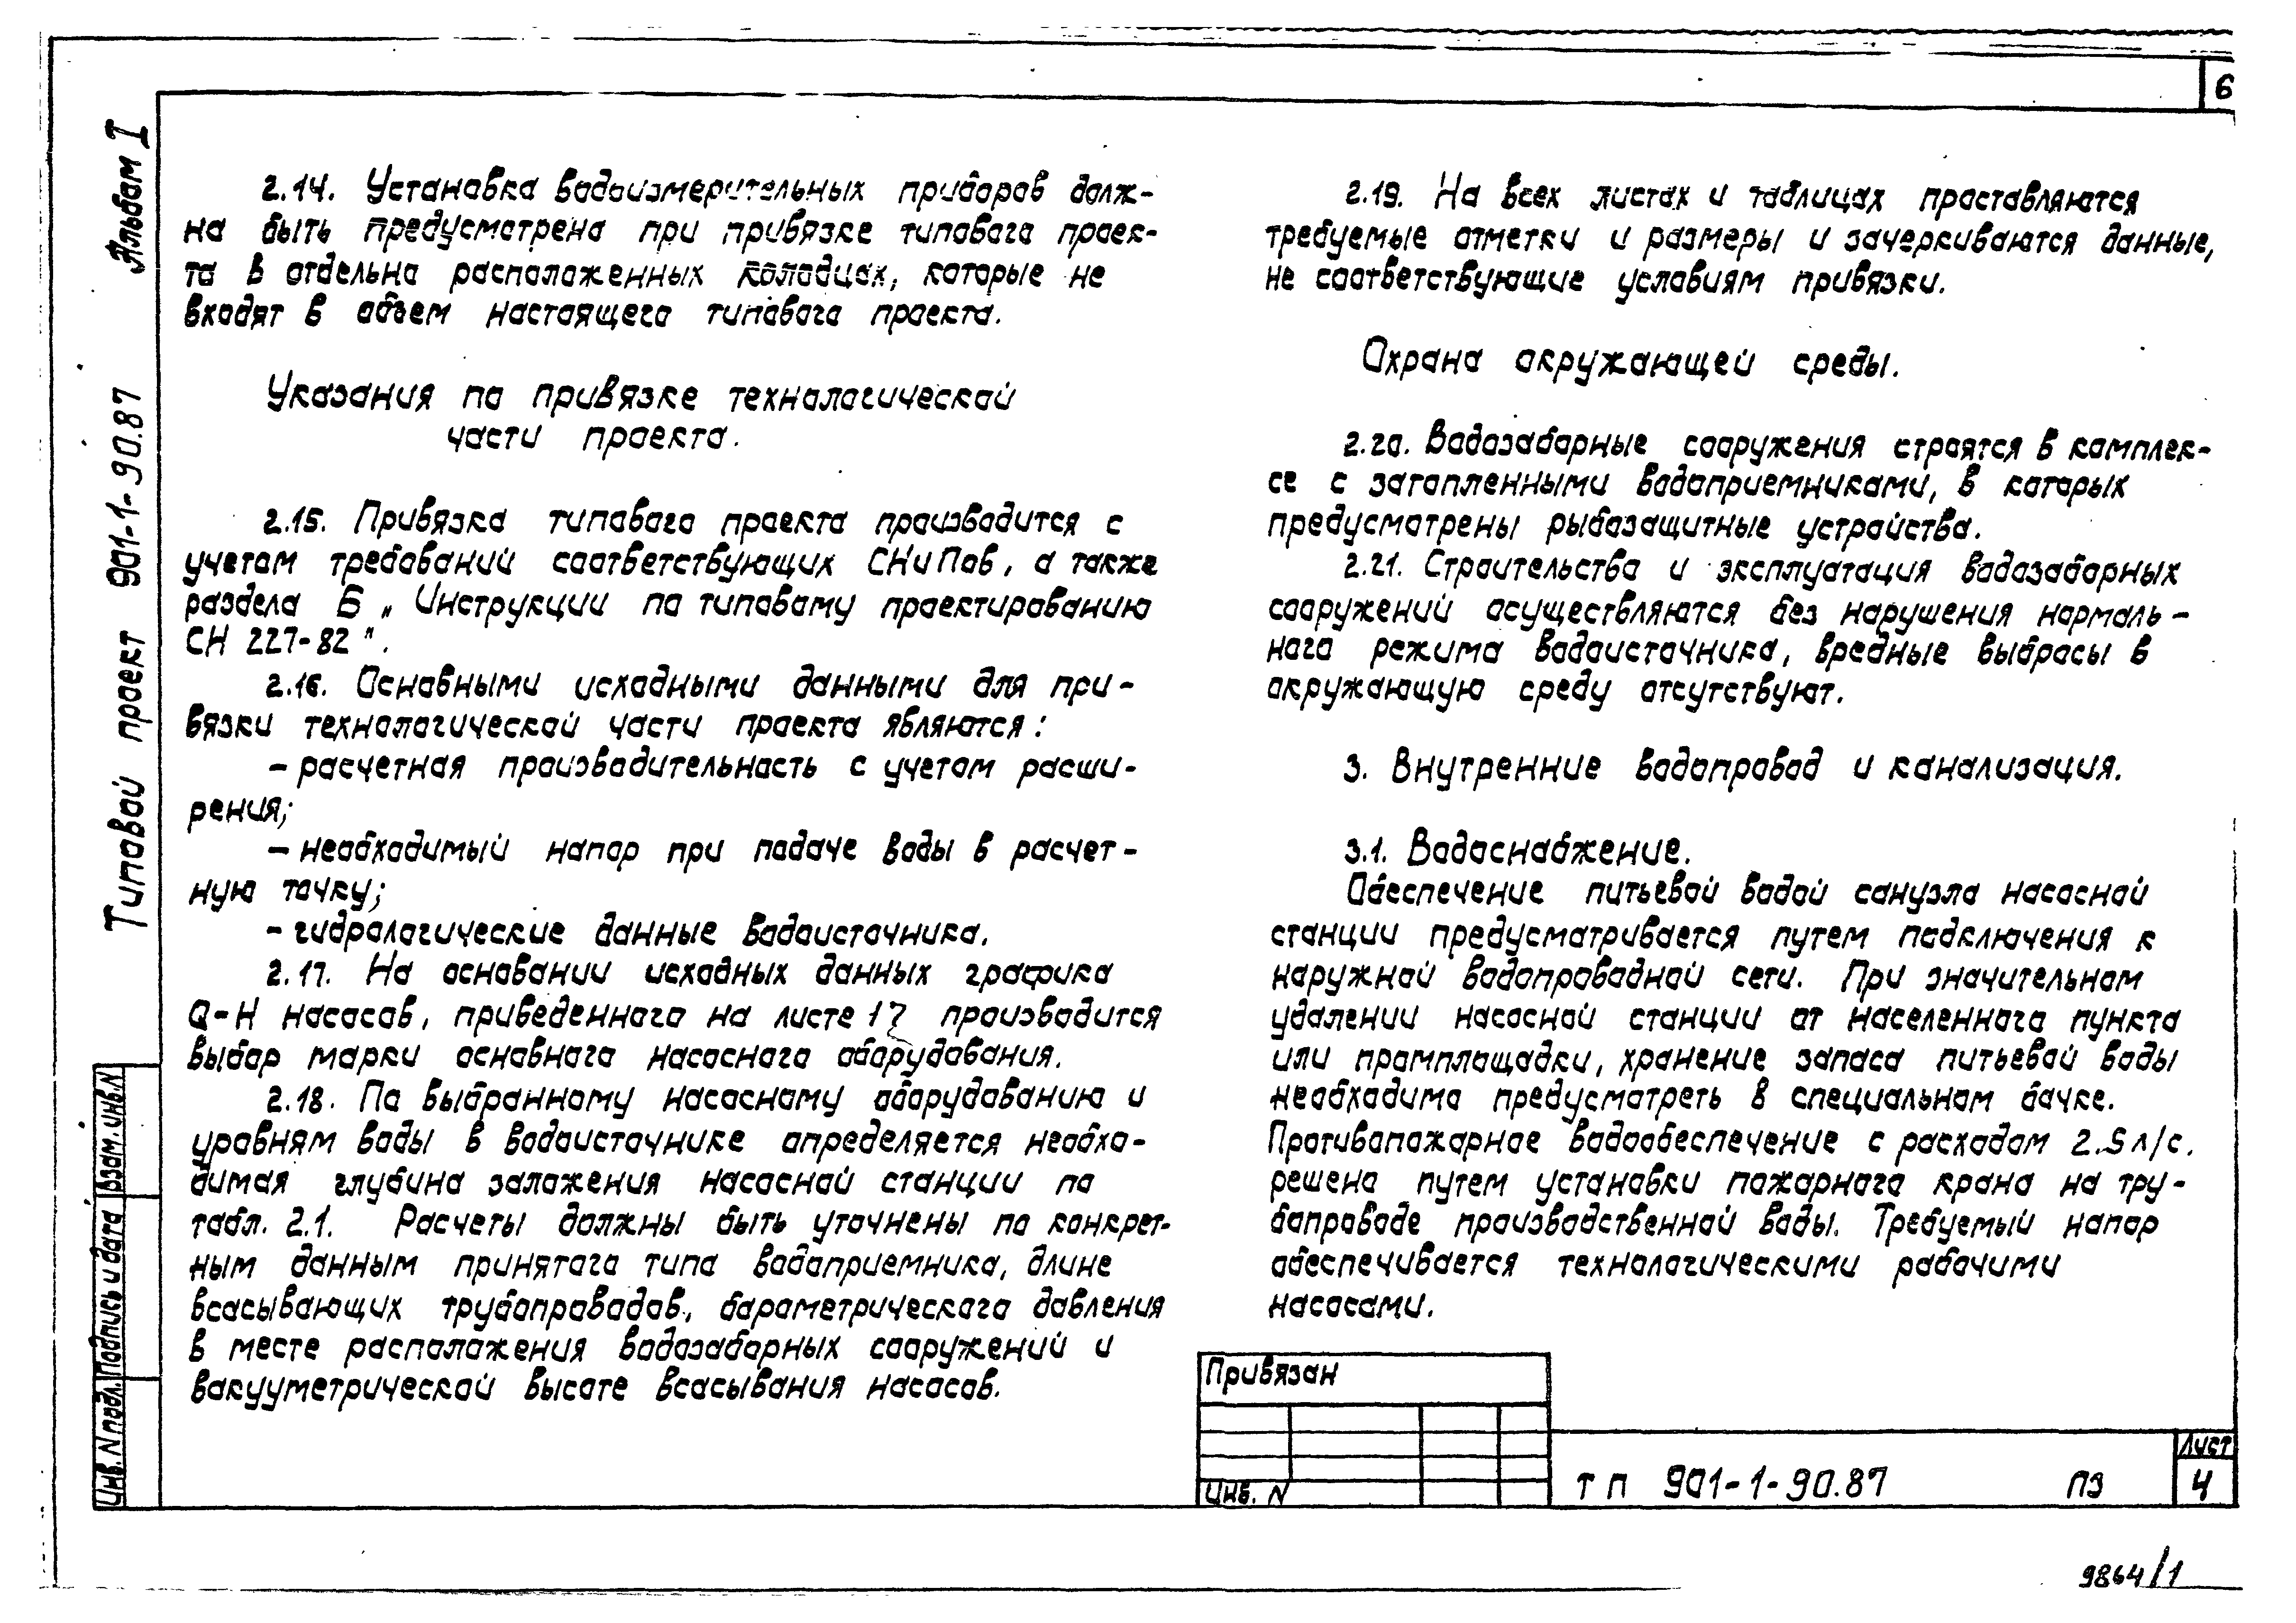 6
Альбом I
Типовой проект 901-1-90.87
2.14. Установка водоизмерительных приборов долж-
на быть предусмотрена при привязке типового проек-
та в отдельно расположенных колодцах, которые не
входят в объем настоящего типового проекта.
Указания по привязке технологической
части проекта.
2.15. Привязка типового проекта производится с
учетом требований соответствующих СНиПов, а также
раздела 6 „Инструкции по типовому проектированию
СН 227-82".
2.16. Основными исходными данными для при-
вязки технологической части проекта являются:
- расчетная производительность с учетом расши-
рения;
- необходимый напор при подаче воды в расчет-
ную точку;
- гидрологические данные водоисточника.
2.17. На основании исходных данных графика
Q-H насосов, приведенного на листе 17 производится
выбор марки основного насосного оборудования.
2.18. По выбранному насосному оборудованию и
уровням воды в водоисточнике определяется необхо-
димая глубина заложения насосной станции по
табл. 2.1. Расчеты должны быть уточнены по конкрет-
ным данным принятого типа водоприемника, длине
всасывающих трубопроводов, барометрического давления
в месте расположения водозаборных сооружений и
вакууметрической высоте всасывания насосов.
2.19. На всех листах и таблицах проставляются
требуемые отметки и размеры и зачеркиваются данные,
не соответствующие условиям привязки.
Охрана окружающей среды.
2.20. Водозаборные сооружения строятся в комплек-
се с затопленными водоприемниками, в которых
предусмотрены рыбозащитные устройства.
2.21. Строительство и эксплуатация водозаборных
сооружений осуществляются без нарушения нормаль-
ного режима водоисточника, вредные выбросы в
окружающую среду отсутствуют.
3. Внутренние водопровод и канализация.
3.1. Водоснабжение.
Обеспечение питьевой водой санузла насосной
станции предусматривается путем подключения к
наружной водопроводной сети. При значительном
удалении насосной станции от населенного пункта
или промплощадки, хранение запаса питьевой воды
необходимо предусмотреть в специальном бачке.
Противопожарное водообеспечение с расходом 2.5 л/с.
решено путем установки пожарного крана на тру-
бопроводе производственной воды. Требуемый напор
обеспечивается технологическими рабочими
насосами.
Взам. инв. N
Подпись и дата
Инв. N подл.
Привязан
Инв. N
ТП 901-1-90.87 ПЗ
Лист
4
9864/1